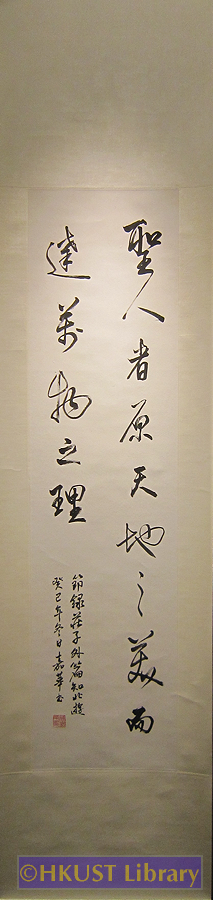 聖人者原天地之美而
達萬物之理
節錄莊子外篇知北遊
癸巳年冬日嘉華書
©HKUST Library